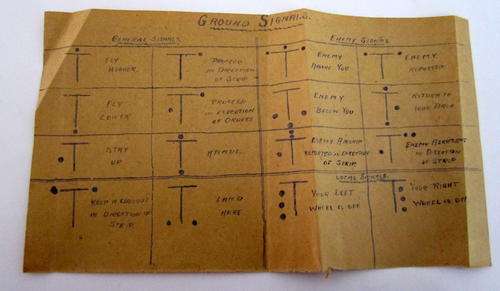 GROUND SIGNALS.
GENERAL SIGNALS
ENEMY SIGNALS
FLY HIGHER
PROCEED IN DIRECTION OF STRIP
ENEMY ABOVE YOU
ENEMY REPORTED
FLY LOWER
PROCEED IN DIRECTION OF ORDERS
ENEMY BELOW YOU
RETURN TO YOUR DROME
STAY UP
ATTACK
ENEMY AIRSHIP REPORTED IN DIRECTION OF STRIP
ENEMY AEROPLANES IN DIRECTION OF STRIP
LOCAL SIGNALS.
KEEP A LOOKOUT IN DIRECTION OF STRIP
LAND HERE
YOUR LEFT WHEEL IS OFF
YOUR RIGHT WHEEL IS OFF